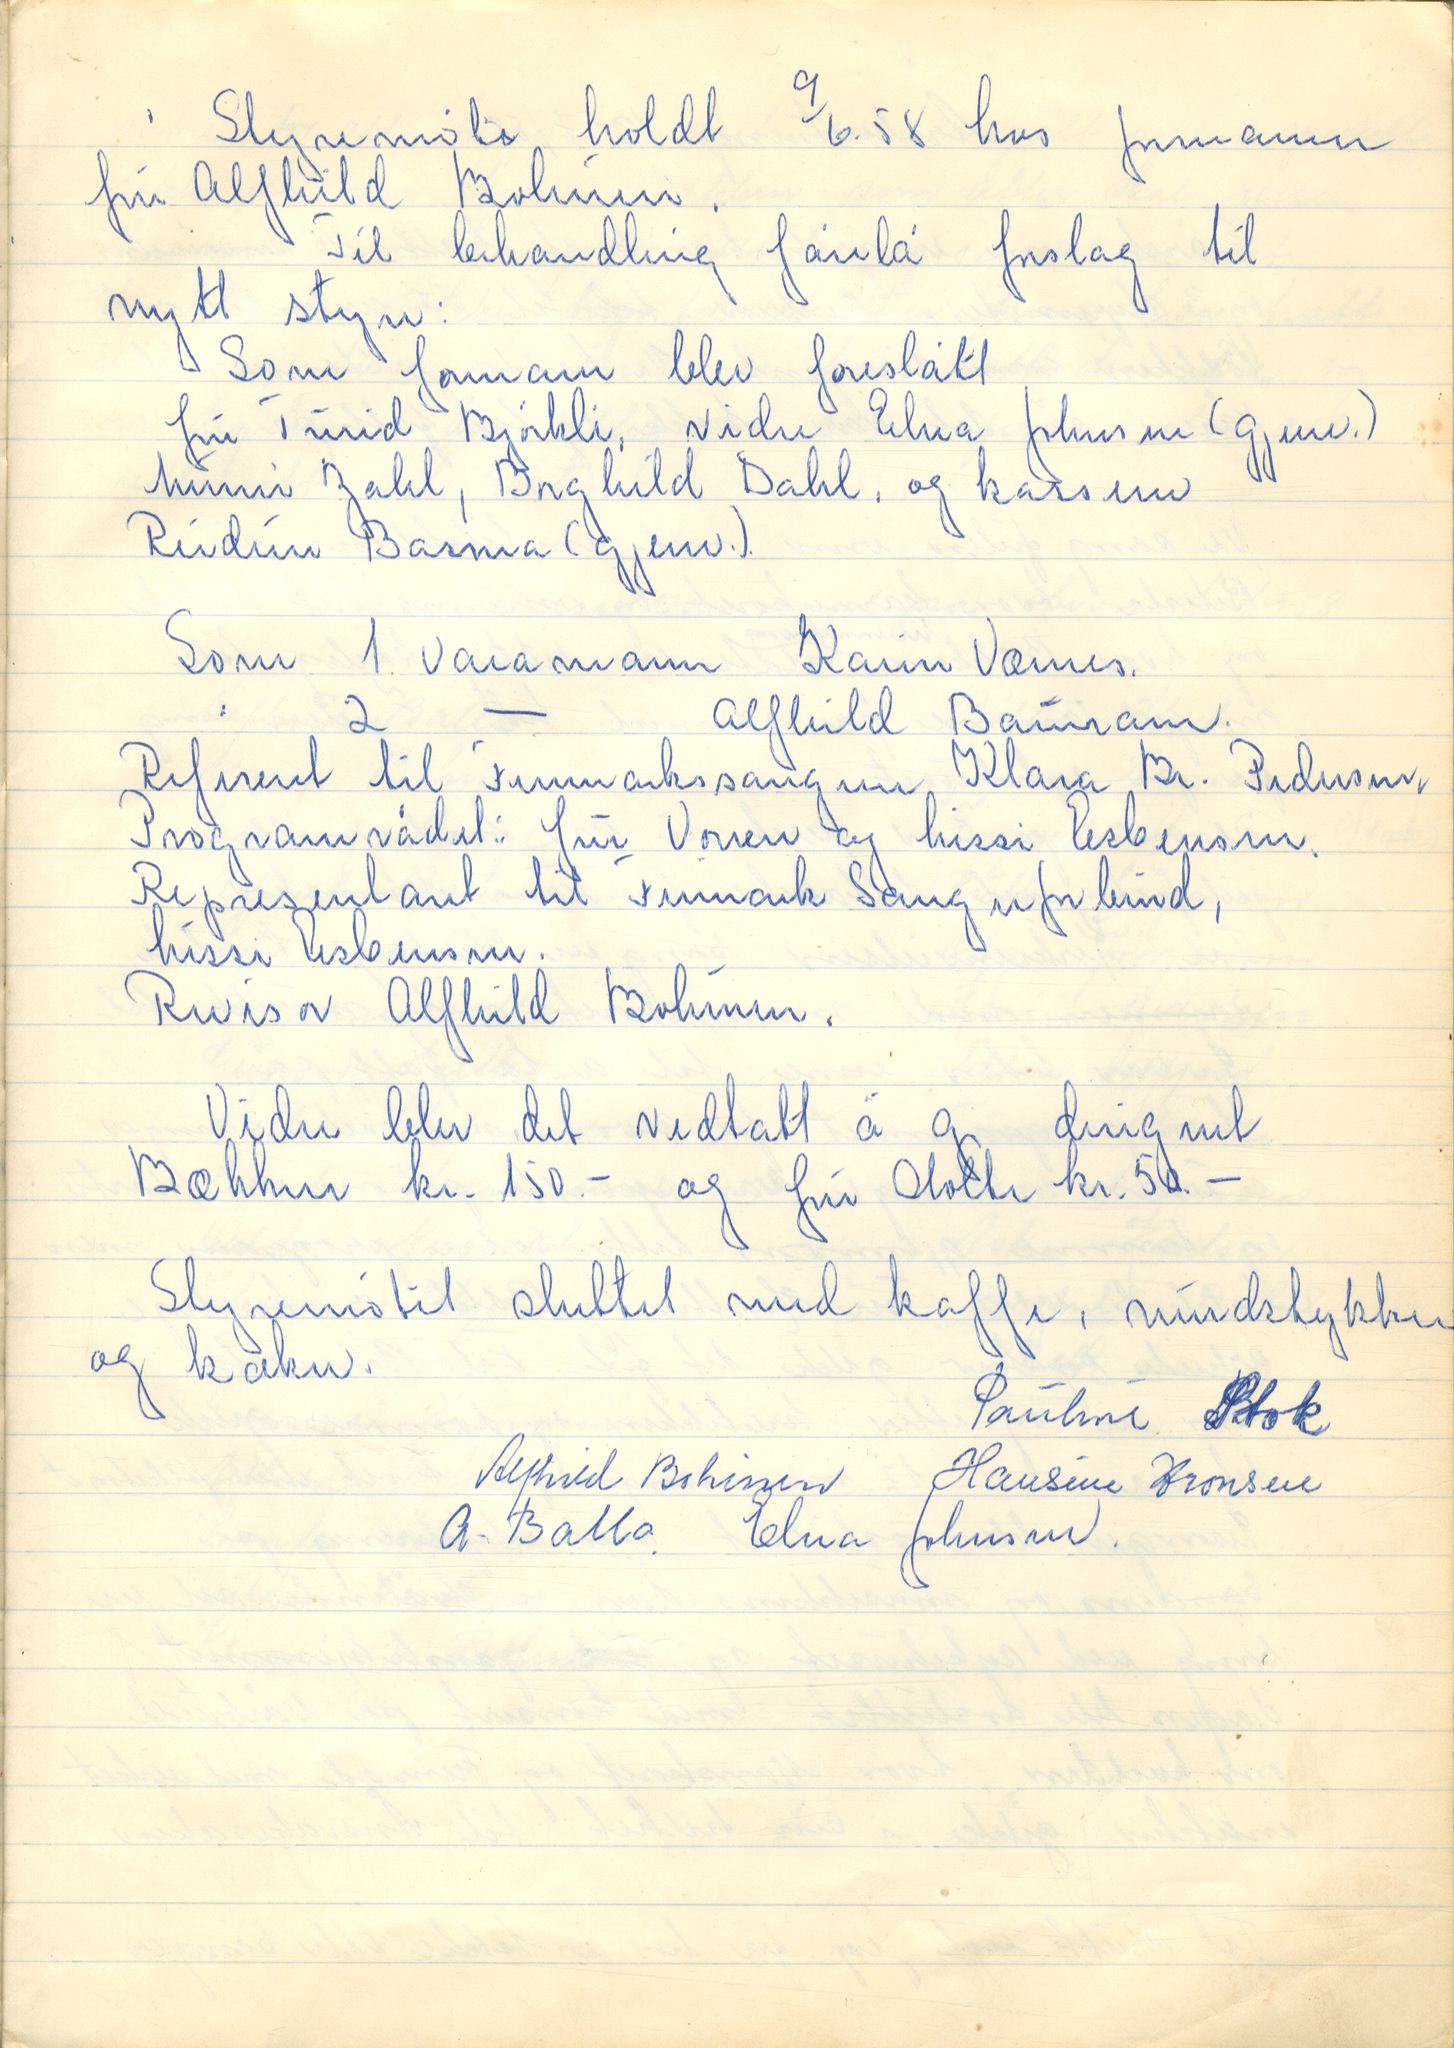 Styremöte holdt 9/6.58 hos formannen
frú Alfhild Bohinen.
Til behandling forelå forslag til
nytt styre:
Som formann blev foreslått
frú Túrid Björkli, videre Edna Johnsen (gjenv.)
Mimi Zahl, Borghild Dahl, og kasserer
Reidún Basma (gjenv.).
Som 1 varamann Karin Værnes.
" 2 — Alfhild Baúram.
Referent til Finnmarkssangeren Klara Br. Pedersen.
Programrådet: frú Vorren og Lissi Esbensen.
Representant til Finnmark Sangerforbúnd,
Lissi Esbensen.
Revisor Alfhild Bohinen.
Videre blev det vedtatt å gi dirigent
Bækken kr. 150.- og frú Olette kr. 50.-
Styremötet sluttet med kaffe, rúndstykker
og kaker.
Paúline Stok
Alfhild Bohinen Hansine Aronsen
A. Balto. Edna Johnsen.